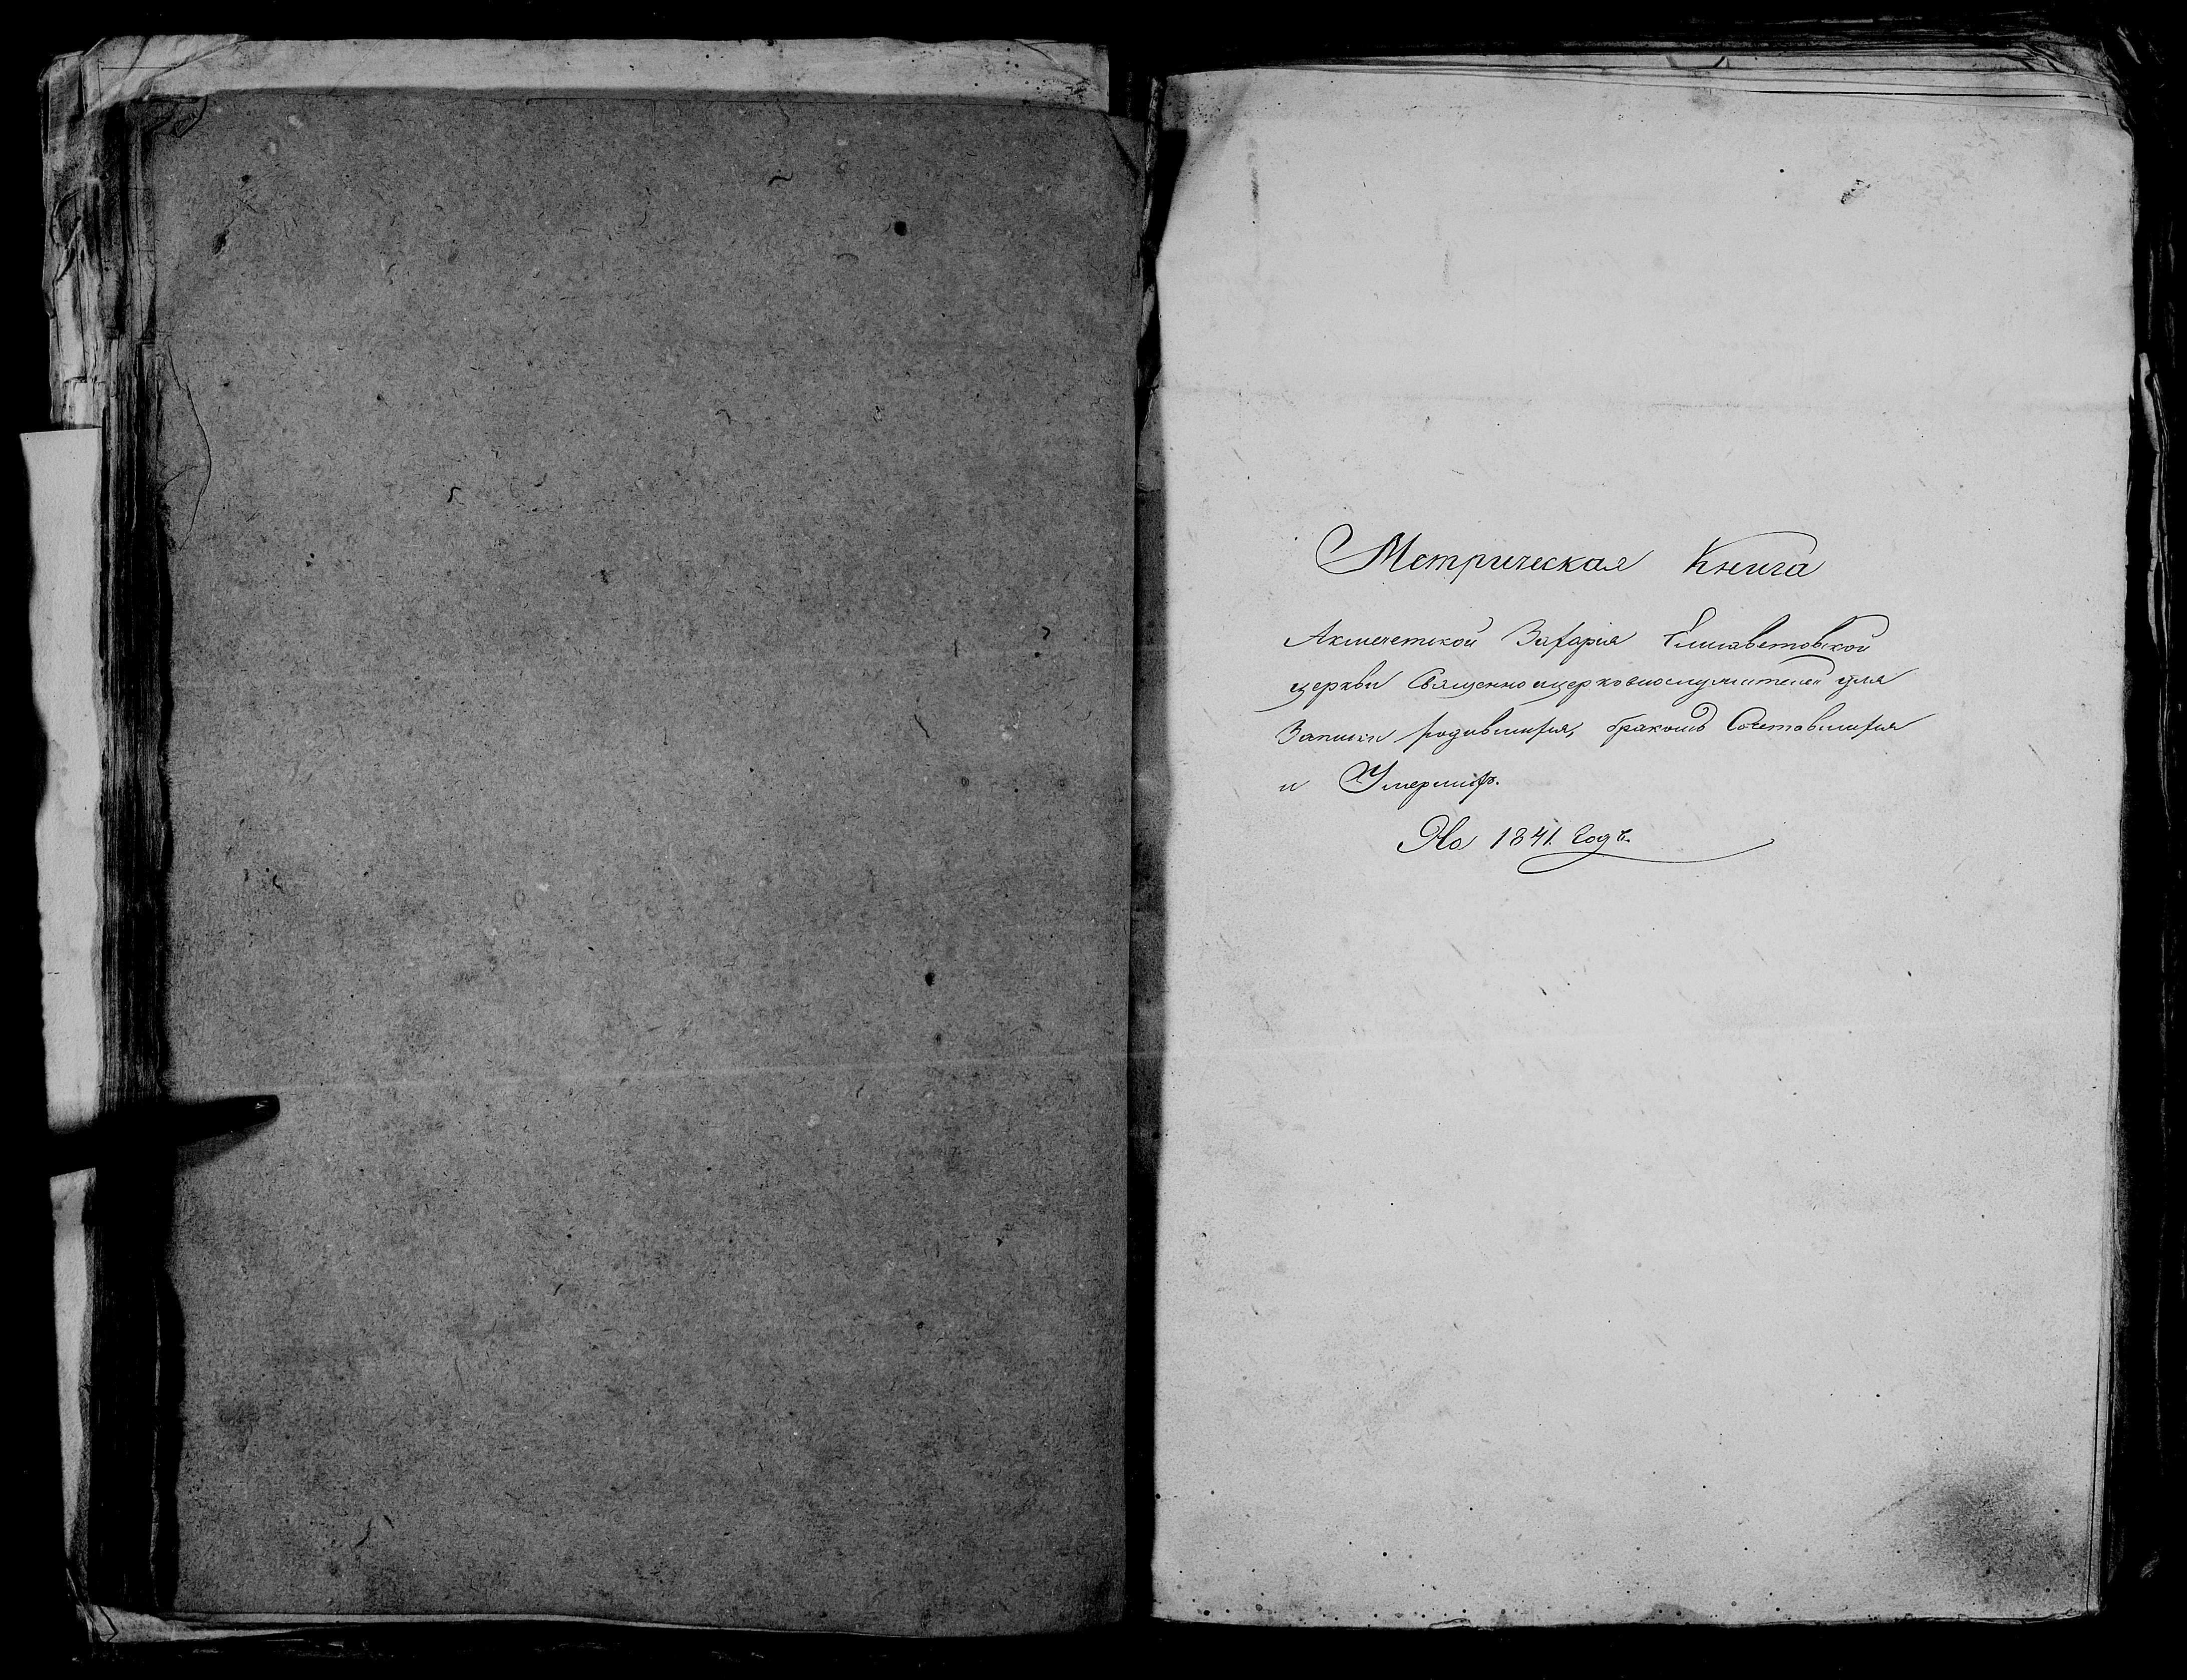 Метрическая Книга
Акмечетской Захаріа Елисаветовской
церкви Священноицерковнослужителей для
Записки родившихся, бракомъ Сочетавшихся
и Умершихъ.
На 1841. Годъ.